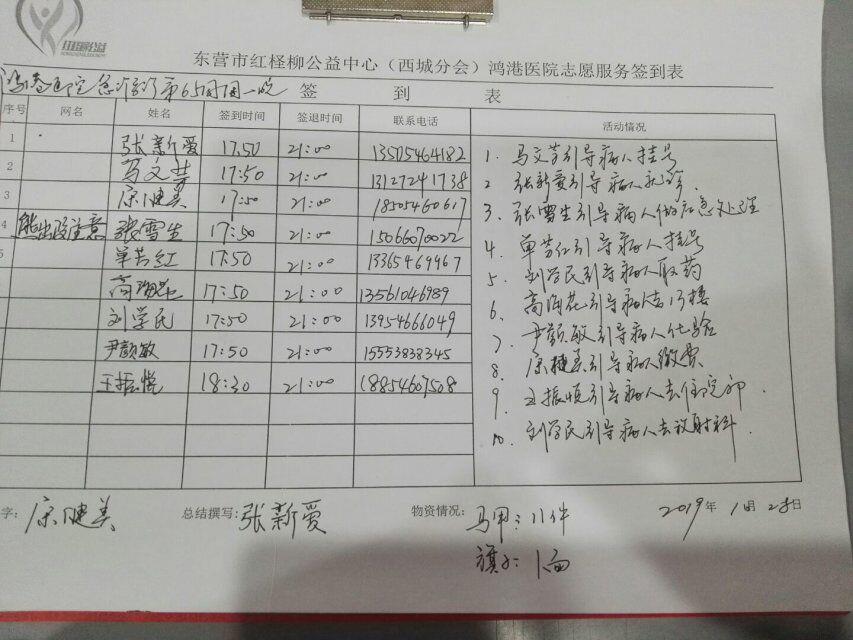 东营市红柽柳公益中心（西城分会）鸿港医院志愿服务签到表
鸿港医院急诊 第65周周一晚 签到表
序号 网名 姓名 签到时间 签退时间 联系电话 活动情况
1 张新爱 17:50 21:00 13505464182
2 马文芳 17:50 21:00 13127241738
3 17:50 21:00 18505460617
4 熊出没注意 张雪生 17:50 21:00 15066070022
5 单芳红 17:50 21:00 13365469467
高海花 17:50 21:00 13561046989
刘学民 17:50 21:00 13954666049
尹颜敏 17:50 21:00 15553838345
王振悦 18:30 21:00 18854607508
1. 马文芳引导病人挂号
2 张新爱引导病人
3. 张雪生引导病人做应急处理
4. 单芳红引导病人挂号
5. 刘学民引导病人取药
6. 高海花引导病人去
7. 尹颜敏引导病人化验
8. 引导病人缴费
9. 王振悦引导病人去住院部.
10. 刘学民引导病人去放射科.
字： 总结撰写:张新爱 物资情况: 马甲:11件 2019年1月28日
旗子:1面